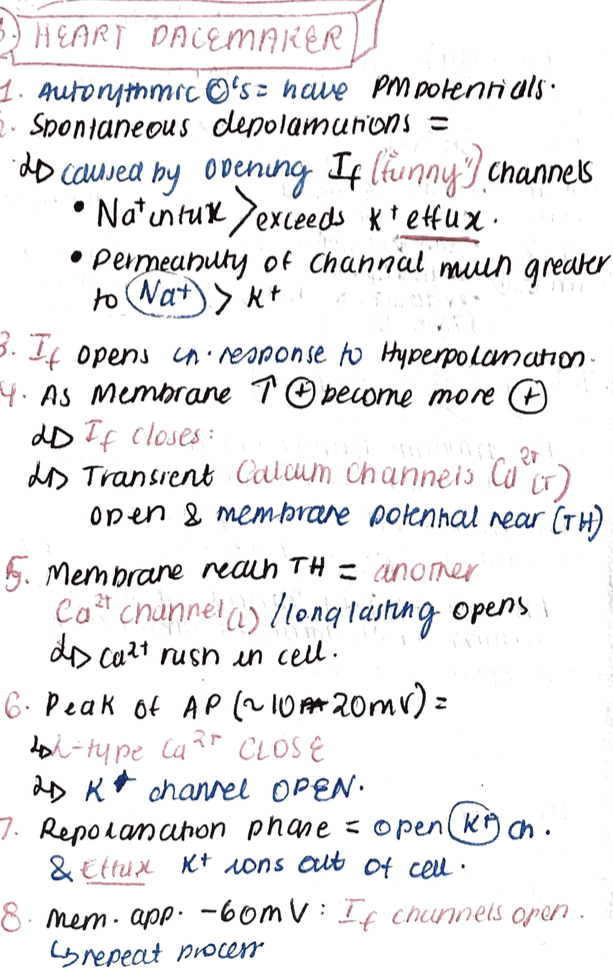 3. HEART PACEMAKER
1. Autorythmic ©'s = have PM potentials.
2. Spontaneous depolarizations =
↳ caused by opening If ("funny") channels
• Na+ influx > exceeds K+ efflux.
• Permeability of channel much greater
to Na+ > K+
3. If opens in response to Hyperpolarization.
4. As Membrane ↑ ⊕ become more ⊕
↳ If closes:
↳ Transient Calcium channels Ca2+ (T)
open & membrane potential near (TH)
5. Membrane reach TH = another
Ca2+ channel (L) / long lasting opens
↳ Ca2+ rush in cell.
6. Peak of AP (~10 20mV) =
↳ L-type Ca2+ CLOSE
↳ K+ channel OPEN.
7. Repolarization phase = open K+ ch.
& Efflux K+ ions out of cell.
8. mem. app. -60mV: If channels open.
↳ repeat process